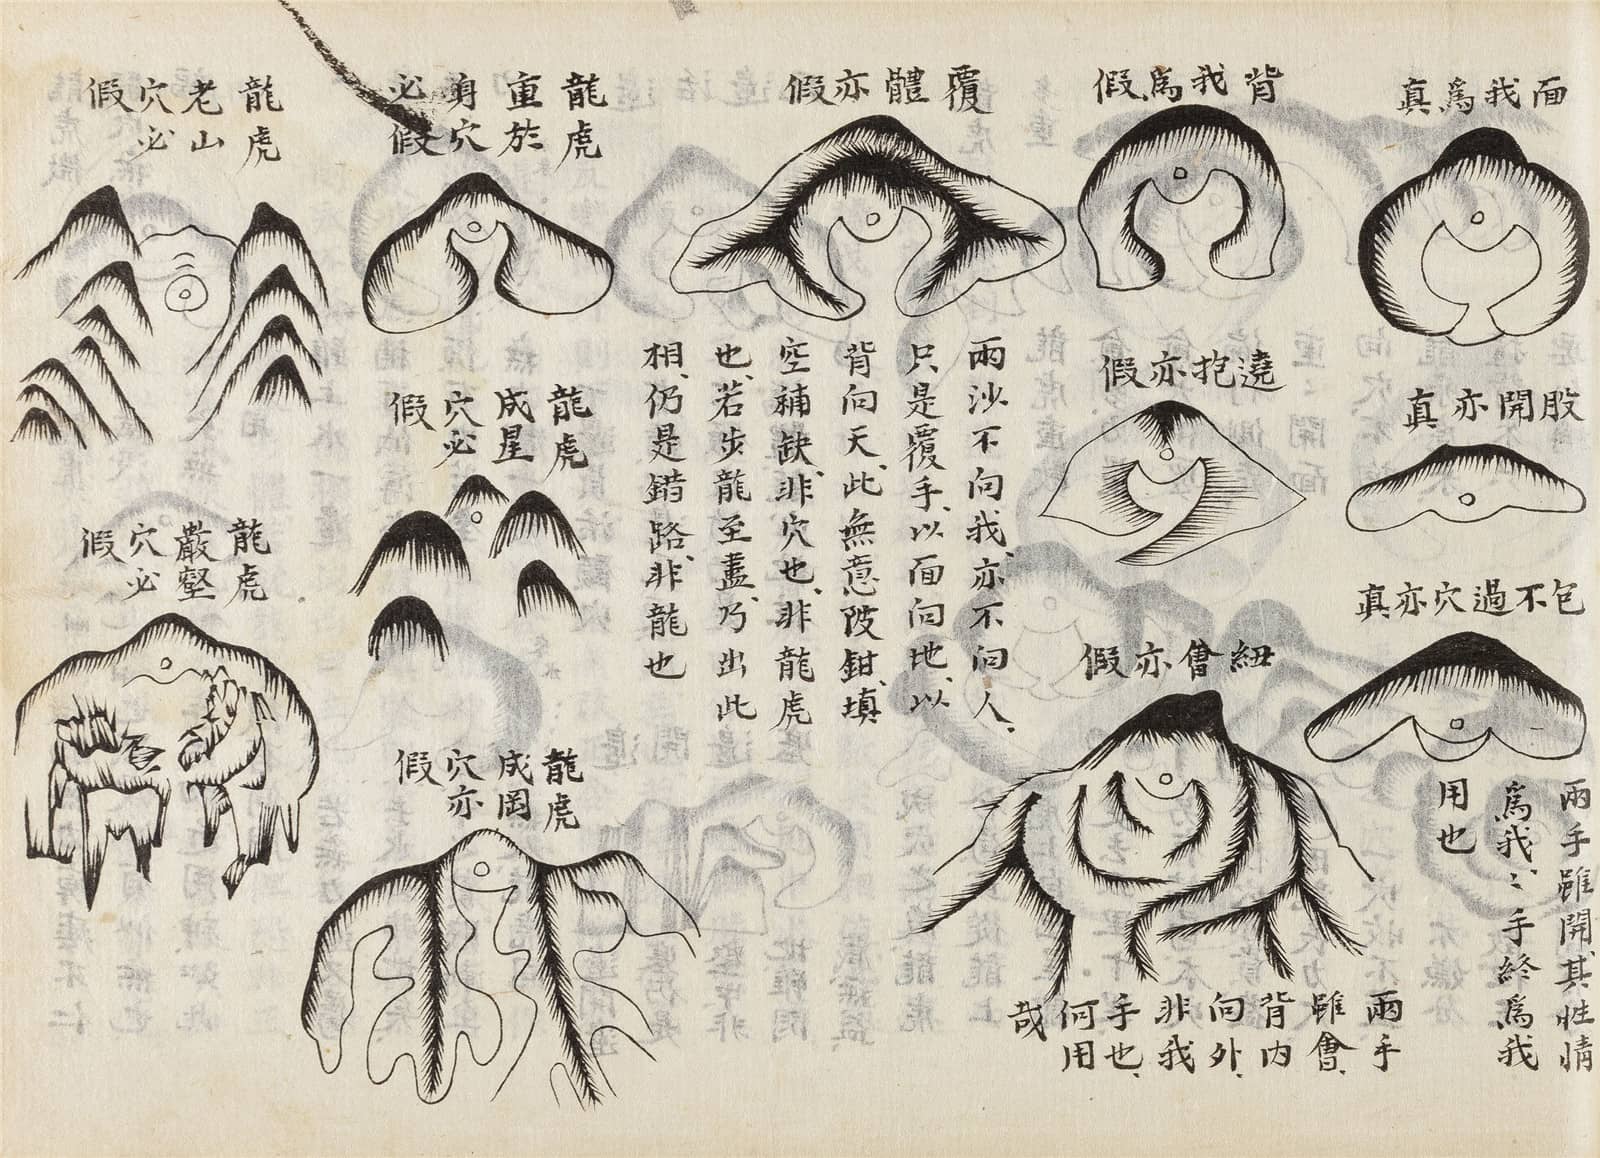 面我爲真
股開亦真
包不過穴亦真
兩手雖開、其性情
爲我、〻手終爲我
用也
背我爲假
遶抱亦假
紐會亦假
兩手
雖會、
背内
向外、
非我
手也、
何用
哉
覆體亦假
兩沙不向我、亦不向人、
只是覆手、以面向地、以
背向天、此無意陂鉗、填
空補缺、非穴也、非龍虎
也、若步龍至盡、乃出此
相、仍是錯路、非龍也
龍虎
重於
身穴
必假
龍虎
成星
穴必
假
龍虎
成岡
穴亦
假
龍虎
老山
穴必
假
龍虎
巖壑
穴必
假